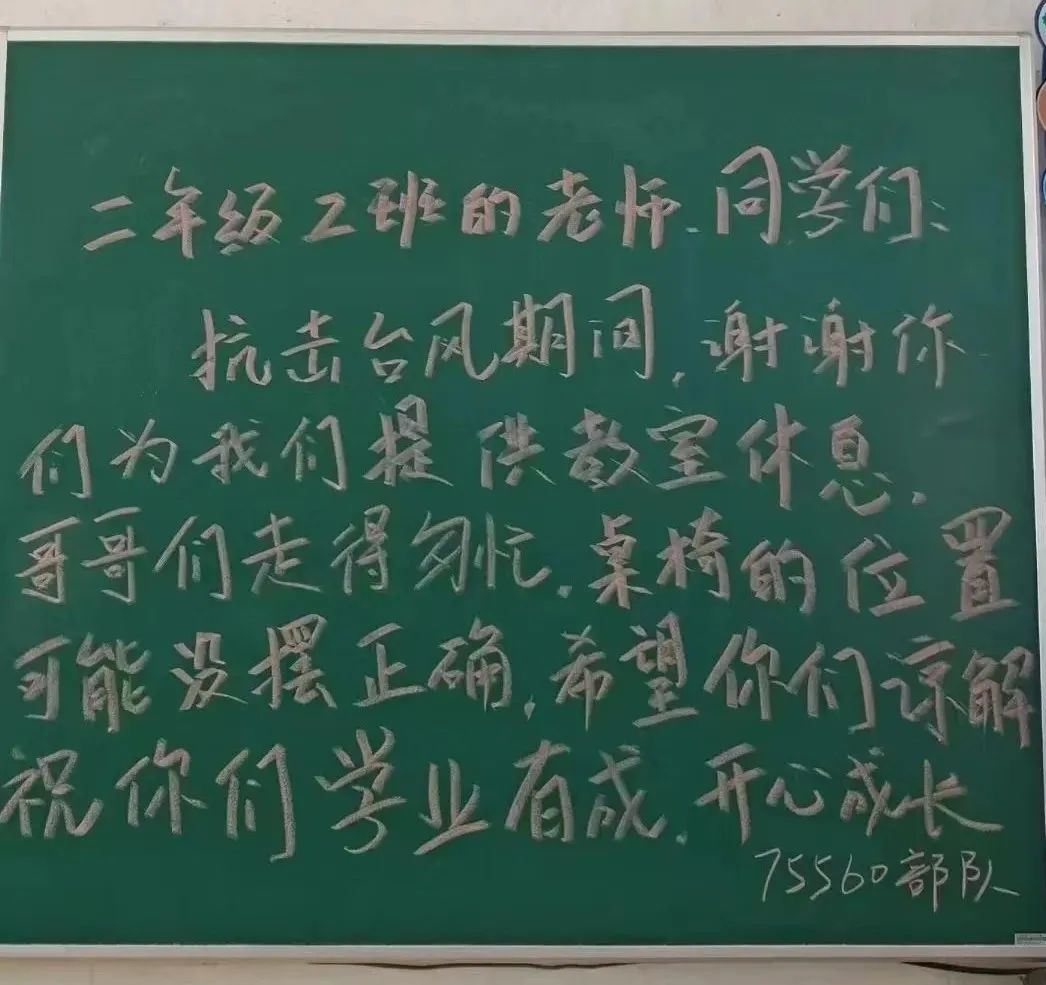 二年级2班的老师、同学们:
抗击台风期间,谢谢你
们为我们提供教室休息.
哥哥们走得匆忙.桌椅的位置
可能没摆正确,希望你们谅解
祝你们学业有成.开心成长
75560部队